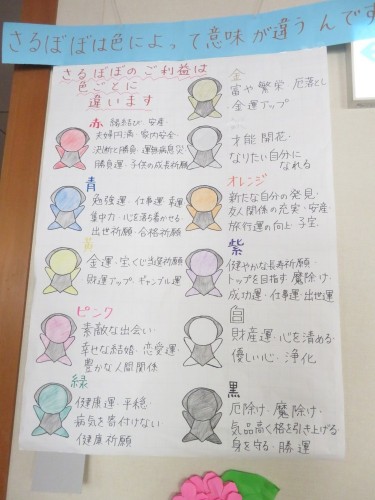 さるぼぼは色によって意味が違うんです
さるぼぼのご利益は
色ごとに
違います
赤 縁結び・安産
夫婦円満・家内安全
決断と勝負・運無病息災
勝負運・子供の成長祈願
青
勉強運・仕事運
集中力・心を落ち着かせる
出世祈願・合格祈願
金運・宝くじ当選祈願
財運アップ・ギャンブル運
ピンク
素敵な出会い
幸せな結婚・恋愛運
豊かな人間関係
緑
健康運・平穏・
病気を寄付けない
健康祈願
金
富や繁栄・厄落とし
金運アップ
才能開花・
なりたい自分に
なれる
オレンジ
新たな自分の発見・
友人関係の充実・安産
旅行運の向上・子宝
紫
健やかな長寿祈願・
トップを目指す・魔除け
成功運・仕事運・出世運
白
財産運・心を清める・
優しい心・浄化
黒
厄除け・魔除け・
気品高く格を引き上げる
身を守る・勝運